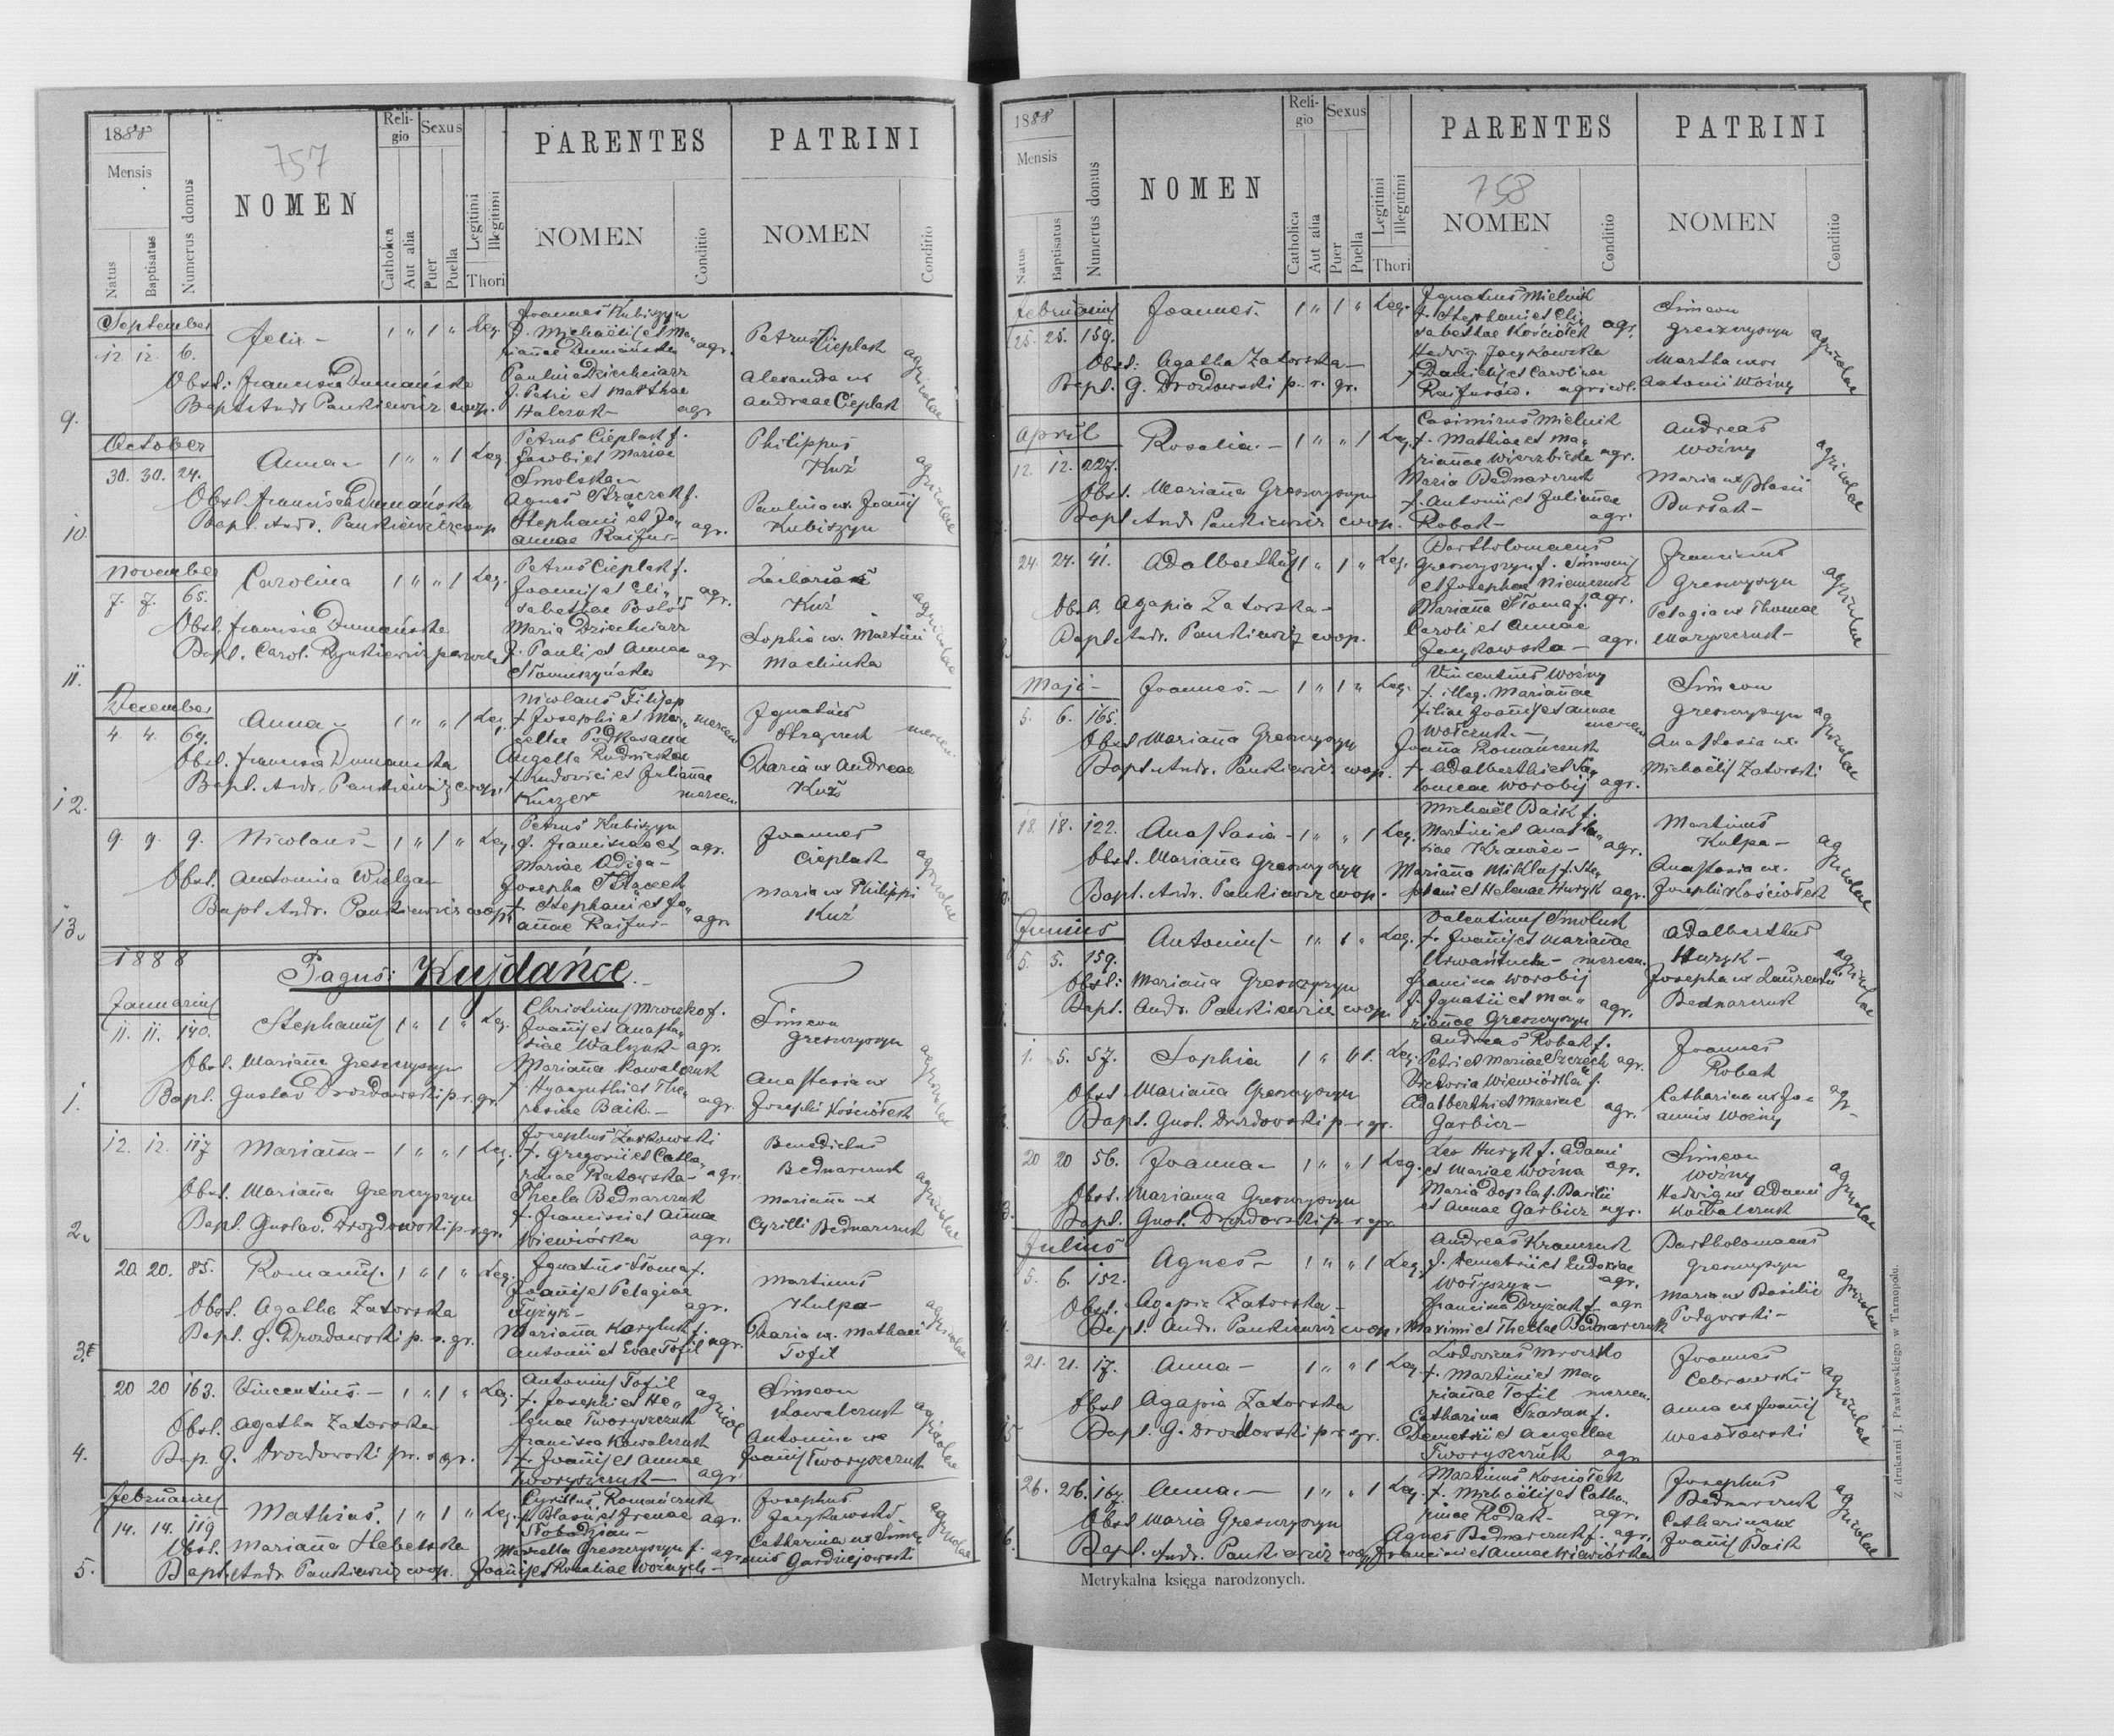 1888
Mensis
Natus
Baptisatus
Numerus domus
757
NOMEN
Religio
Catholica
Aut alia
Sexus
Puer
Puella
Legitimi
Illegitimi
Thori
PARENTES
NOMEN
Conditio
PATRINI
NOMEN
Conditio
September
12. 12. 6.
Felix -
1 " 1 " Leg.
Joannes Kubiszyn
f. Michaëlis et Ma„
riañae Dumańska
agr.
Paulina Dziechciarz
f. Petri et Matthae
Halczuk -
agr
Petrus Cieplak
Alexandra ux
Andreae Cieplak
agricolae
Obst: Francisca Dumańska
Bapt. Andr Pankiewicz coop.
9.
October
30. 30. 24.
Anna -
1 " " 1 Leg
Petrus Cieplak f.
Jacobi et Mariae
Smolska -
Agnes Strączek f.
Stephani et Jo„
annae Raifur -
agr.
Philippus
Kuź
Paulina ux. Joañis
Kubiszyn
agricolae
Obst. Francisca Dumańska
Bapt. Andr. Pankiewicz coop
10.
November
7. 7. 65.
Carolina
1 " " 1 Leg.
Petrus Cieplak f.
Joannis et Eli„
sabethae Posłoś
agr.
Maria Dziechciarz
f. Pauli et Annae
agr
Zacharias
Kuź
Sophia ux. Martini
Machinka
agricolae
Obst. Francisca Dumańska
Bapt. Carol. Rynkiewicz parochus
11.
December
4. 4. 69.
Anna -
1 " " 1 Leg.
Nicolaus Filipp
f. Josephi et Mar„
cellae Podkasana
mercen
Angella Rudnicka
f. Ludovici et Juliañae
Kuczer
mercen.
Ignatius
Maria ux Andreae
Kuź
mercen.
Obst. Francisca Dumańska
Bapt. Andr. Pankiewicz coop.
12.
9. 9. 9.
Nicolaus -
1 " 1 " Leg.
Petrus Kubiszyn
f. Francisca et
Mariae Adiga -
agr.
Josepha Strączek
f. Stephani et Jo„
añae Raifur -
agr.
Joannes
Cieplak
Maria ux Philippi
Kuź
agricolae
Obst. Antonina Wilgan
Bapt Andr. Pankiewicz coop.
13.
1888
Pagus: Kujdańce.
Januarius
11. 11. 140.
Stephanus
1 " 1 " Leg
Christinus Mroczko f.
Joañis et Anasta„
siae Walczuk - agr.
Mariaña Kowalczuk
f. Hyacynthi et The„
resiae Baik. -
agr.
Simeon
Greszczyszyn
Anastasia ux
Josephi Kościółek
agricolae
Obst. Mariaña Greszczyszyn
Bapt. Gustav Drozdowski p. r. gr.
1.
12. 12. 117
Mariaña -
1 " " 1 Leg.
Josephus Zarkowski
f. Gregorii et Catha„
rinae Ratowska -
agr.
Thecla Bednarczuk
f. Francisci et Añae
Wiewiórka
agr.
Benedictus
Bednarczuk
Mariaña ux
Cyrilli Bednarczuk
agricolae
Obst. Mariaña Greszczyszyn
Bapt. Gustav. Drozdowski p. r. gr.
2.
20. 20. 85.
Romanus.
1 " 1 " Leg.
Ignatius Słoma f.
Joañis et Pelagiae
Tyżyk -
agr.
Mariaña Koryluk f.
Antonii et Evae Tofil
agr.
Martinus
Kulpa -
Maria ux. Mathaei
Tofil
agricolae
Obst. Agatha Zatorska
Bapt. G. Drozdowski p. r. gr.
3.
20 20 163.
Vincentius. -
1 " 1 " Leg.
Antonius Tofil
f. Josephi et He„
lenae Tworyszczuk
agricol
Francisca Kowalczuk
f. Joañis et Annae
Tworyszczuk -
agr
Simeon
Kowalczuk
Antonina ux
Joañis Tworyszczuk
agricolae
Obst. Agatha Zatorska
Bap. G. Drozdowski pr. r gr.
4.
Februarius
14. 14. 119
Mathias.
1 " 1 " Leg.
Cyrillus Romańczuk
f. Blasii et Irenae
Słobodzian -
agr.
Marcella Greszczyszyn f.
agr.
Joañis et Rosaliae Woźnych -
Josephus
Jacykowski.
Catharina ux Sime„
onis Gardziejowski
agricolae
Obst. Mariaña Hebelska
Bapt. Andr Pankiewicz coop.
5.
1888
Mensis
Natus
Baptisatus
Numerus domus
NOMEN
Religio
Catholica
Aut alia
Sexus
Puer
Puella
Legitimi
Illegitimi
Thori
PARENTES
758
NOMEN
Conditio
PATRINI
NOMEN
Conditio
Februarius
25. 25. 159.
Joannes.
1 " 1 " Leg.
Ignatius Mielnik
f. Stephani et Eli„
sabethae Kościółek
agr.
Hedvig. Jacykowska
f. Danielis et Carolinae
Raifurów.
agricol.
Simeon
Greszczyszyn
Martha uxor
Antonii Woźny
agricolae
Obst: Agatha Zatorska -
Bapt. G. Drozdowski p. r. gr.
April
12. 12. 227.
Rosalia. -
1 " " 1 Leg.
Casimirus Mielnik
f. Mathiae et Ma„
riañae Wierzbicka
agr.
Maria Bednarczuk
f. Antonii et Juliañae
Robak -
agr.
Andreas
Woźny
Maria ux Blasii
Bursak -
agricolae
Obst. Mariaña Greszczyszyn
Bapt Andr Pankiewicz coop.
24. 24. 41.
Adalberthus
1 " 1 " Leg.
Bartholomaeus
Greszczyszyn f. Simeonis
et Josephae Niemczuk
agr.
Mariaña Słoma f.
Caroli et Annae
Jacykowska -
agr.
Franciscus
Greszczyszyn
Pelagia ux Thomae
Maryszczuk -
agricolae
Obst. Agapia Zatorska -
Bapt. Andr. Pankiewicz coop.
Maji -
5. 6. 165.
Joannes. -
1 " 1 " Leg.
Vincentius Woźny
f. illeg. Mariañae
filiae Joañis et Annae
Wołczuk. -
mercen
Joaña Romańczuk
f. Adalberthi et Sa„
lomeae Worobij
agr.
Simeon
Greszczyszyn
Anastasia ux.
Michaëlis Zatorski
agricolae
Obst Mariaña Greszczyszyn
Bapt. Andr. Pankiewicz coop.
18. 18. 122.
Anastasia -
1 " " 1 Leg.
Michaël Baik f.
Martini et Anasta„
siae Krawiec -
agr.
Mariaña Miklus f. Ste„
phani et Helenae Huryk
agr.
Martinus
Kulpa -
Anastasia ux.
Josephi Kościółek
agricolae
Obst. Mariaña Greszczyszyn
Bapt. Andr. Pankiewicz coop.
Junius
5. 5. 159.
Antonius -
1 " 1 " Leg.
Valentinus Smoluch
f. Joañis et Mariañae
mercen.
Francisca Worobij
f. Ignatii et Ma„
riañae Greszczyszyn
agr.
Adalberthus
Huryk -
Josepha ux Laurentii
Bednarczuk
agricolae
Obst: Mariaña Greszczyszyn
Bapt. Andr. Pankiewicz coop
1. 5. 57.
Sophia
1 " " 1. Leg.
Andreas Robak f.
Petri et Mariae Szczęch
agr.
Victoria Wiewiórka f.
Adalberthi et Mariae
Garbicz -
agr.
Joannes
Robak
Catharina ux Jo„
annis Woźny
agr.
Obst Mariaña Greszczyszyn
Bapt. Gust. Drozdowski p. r. gr.
20 20 56.
Joanna -
1 " " 1 Leg.
Leo Huryk f. Adami
et Mariae Woźna
agr.
Maria Dopla f. Basilii
et Annae Garbicz
agr.
Simeon
Woźny
Hedvig ux Adami
Kowalczuk
agricolae
Obst. Marianna Greszczyszyn
Bapt. Gust. Drozdowski p. r. gr.
Julius
5. 6. 152.
Agnes -
1 " " 1 Leg.
Andreas Krawczuk
f. Demetrii et Eudoxiae
Wołyszyn -
agr.
Francisca Dryżak f.
agr
Maximi et Theclae Bednarczuk
Bartholomaeus
Greszczyszyn
Maria ux Basilii
Podgorski -
agricolae
Obst. Agapia Zatorska -
Bapt. Andr. Pankiewicz coop.
21. 21. 17.
Anna -
1 " " 1 Leg
Ludovicus Mroczko
f. Martini et Ma„
riañae Tofil
mercen.
Catharina Szaran f.
Demetrii et Angellae
Tworyszczuk
agr
Joannes
Cebrowski -
Anna ux Joañis
Wesołowski
agricolae
Obst Agapia Zatorska
Bapt. G. Drozdowski p. r. gr.
26. 26. 167.
Anna. -
1 " " 1 Leg.
Martinus Kościółek
f. Michaëlis et Catha„
rinae Rodak -
agr.
Agnes Bednarczuk f.
agr.
Francisci et Annae Wiewiórka
Josephus
Bednarczuk
Catharina ux
Joañis Baik
agricolae
Obst Maria Greszczyszyn
Bapt. Andr. Pankiewicz coop
Metrykalna księga narodzonych.
Z drukarni J. Pawłowskiego w Tarnopolu.